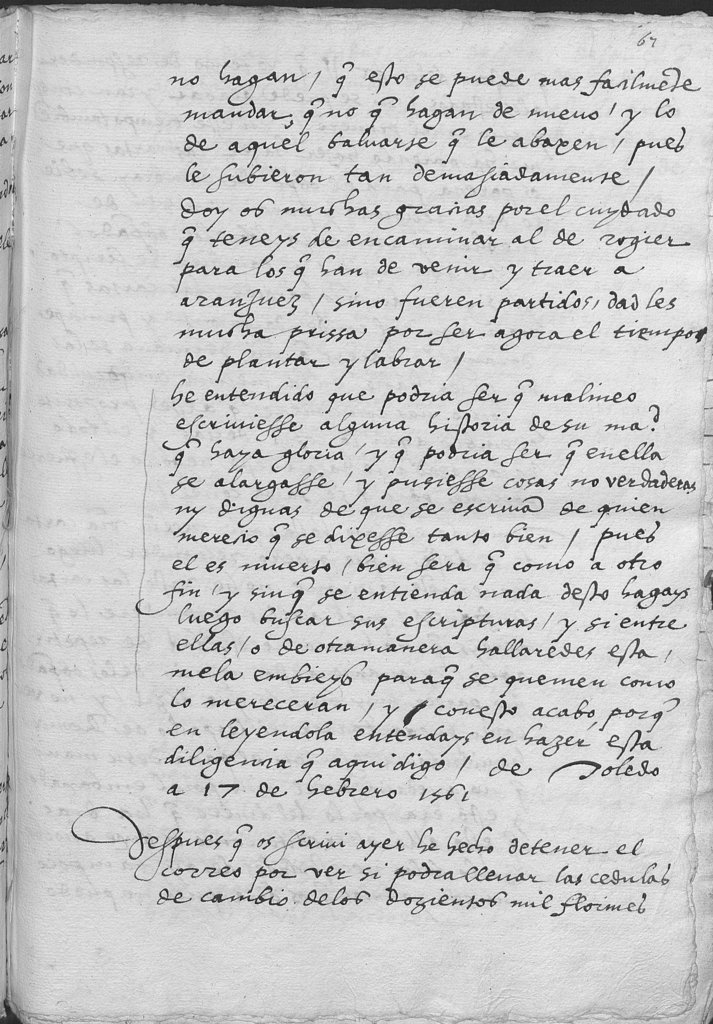 67
no hagan / q̃ esto se puede mas facilmẽte
mandar, q̃ no q̃ hagan de nuevo / y lo
de aquel baluarse q̃ le abaxen / pues
le subieron tan demasiadamense /
doy os muchas gracias por el cuydado
q̃ teneys de encaminar al de rogier
para los q̃ han de venir y traer a
aranJuez / sino fueren partidos, dad les
mucha prissa por ser agora el tiempo
de plantar y labrar /
he entendido que podria ser q̃ malineo
escriviesse alguna historia de su ma.d
q̃ haya gloria / y q̃ podria ser q̃ en ella
se alargasse / y pusiesse cosas no verdaderas
ny dignas de que se escrivã de quien
merecio q̃ se dixesse tanto bien / pues
el es muerto / bien sera q̃ como a otro
fin / y sin q̃ se entienda nada desto hagays
luego buscar sus escripturas / y si entre
ellas / o de otra manera hallaredes esta /
me la embieys paraq̃ se quemen como
lo mereceran / y con esto acabo, porq̃
en leyendola entendays en hazer esta
diligencia q̃ aqui digo / de Toledo
a 17 de hebrero 1561
Despues q̃ os scrivi ayer he hecho detener el
correo por ver si podra llevar las cedulas
de cambio delos dozientos mil florines